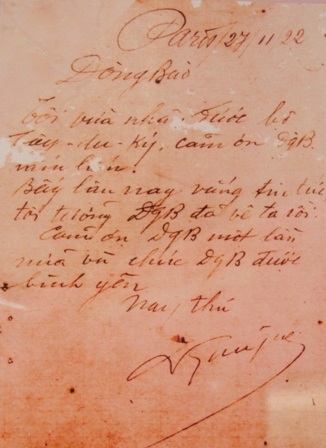 Paris, 27/11/22
Đồng Bào
Tôi vừa nhận được bộ
Tây-du-Ký, cảm ơn ĐgB
Bấy lâu nay vắng tin tức
tôi tưởng ĐgB đã về rồi.
Cảm ơn ĐgB một lần
nữa và chúc ĐgB được
bình yên
Nay thư